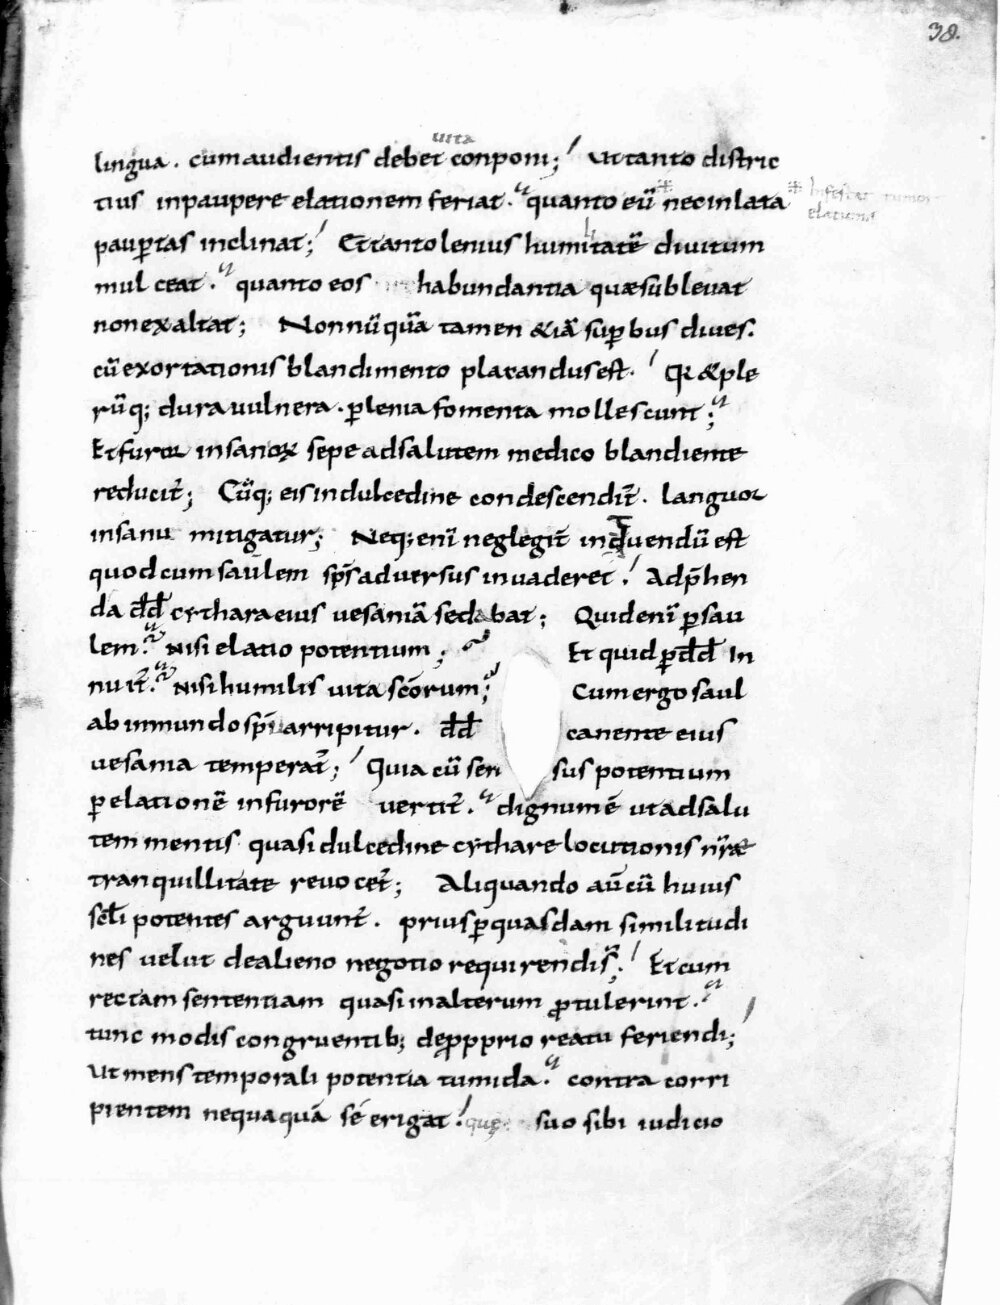 38.
uita
lingua. cumaudientis debet conponi; ut tanto distric
tius inpaupere elationem feriat. quanto eū nec inlata
infestat tumor
elationis
paupertas inclinat; Et tanto lenius humilitatē diuitum
mulceat. quanto eos habundantia quae sūbleuat
non exaltat; Nonnūquā tamen &iā sup̄bus diues.
cū exortationis blandimento placandus est. Qr &ple
rūq; dura uulnera. p̄ lenia fomenta mollescunt;
Et furor insanoꝝ sepe ad salutem medico blandiente
reducit̄; Cūq; eis in dulcedine condescendit̄. languor
insanu mitigatur; Neq; enī neglegit̄ intuendū est
quod cum saulem sp̄s aduersus inuaderet! Adp̄hen
da dd̄ cythara eius uesaniā sedabat; Quid enī p̄ sau
lem. nisi elatio potentium; Et quid p̄ dd̄ In
nuit̄. nisi humilis uita sc̄orum; Cum ergo saul
ab inmundo sp̄u arripitur. dd̄ canente eius
uesania temperat̄; Quia cū sensus potentium
p̄ elationē in furorē uertit̄. dignum ē ut ad salu
tem mentis quasi dulcedine cythare locutionis nr̄ae
tranquillitate reuocet̄; Aliquando aū cū huius
scl̄i potentes arguunt̄. prius p̄ quasdam similitudi
nes uelut de alieno negotio requirendi s̄; Et cum
rectam sententiam quasi in alterum ꝓtulerint.
tunc modis congruentib; de ꝓpprio reatu feriendi;
ut mens temporali potentia tumida. contra corri
pientem nequaquā sē erigat! quę suo sibi iudicio